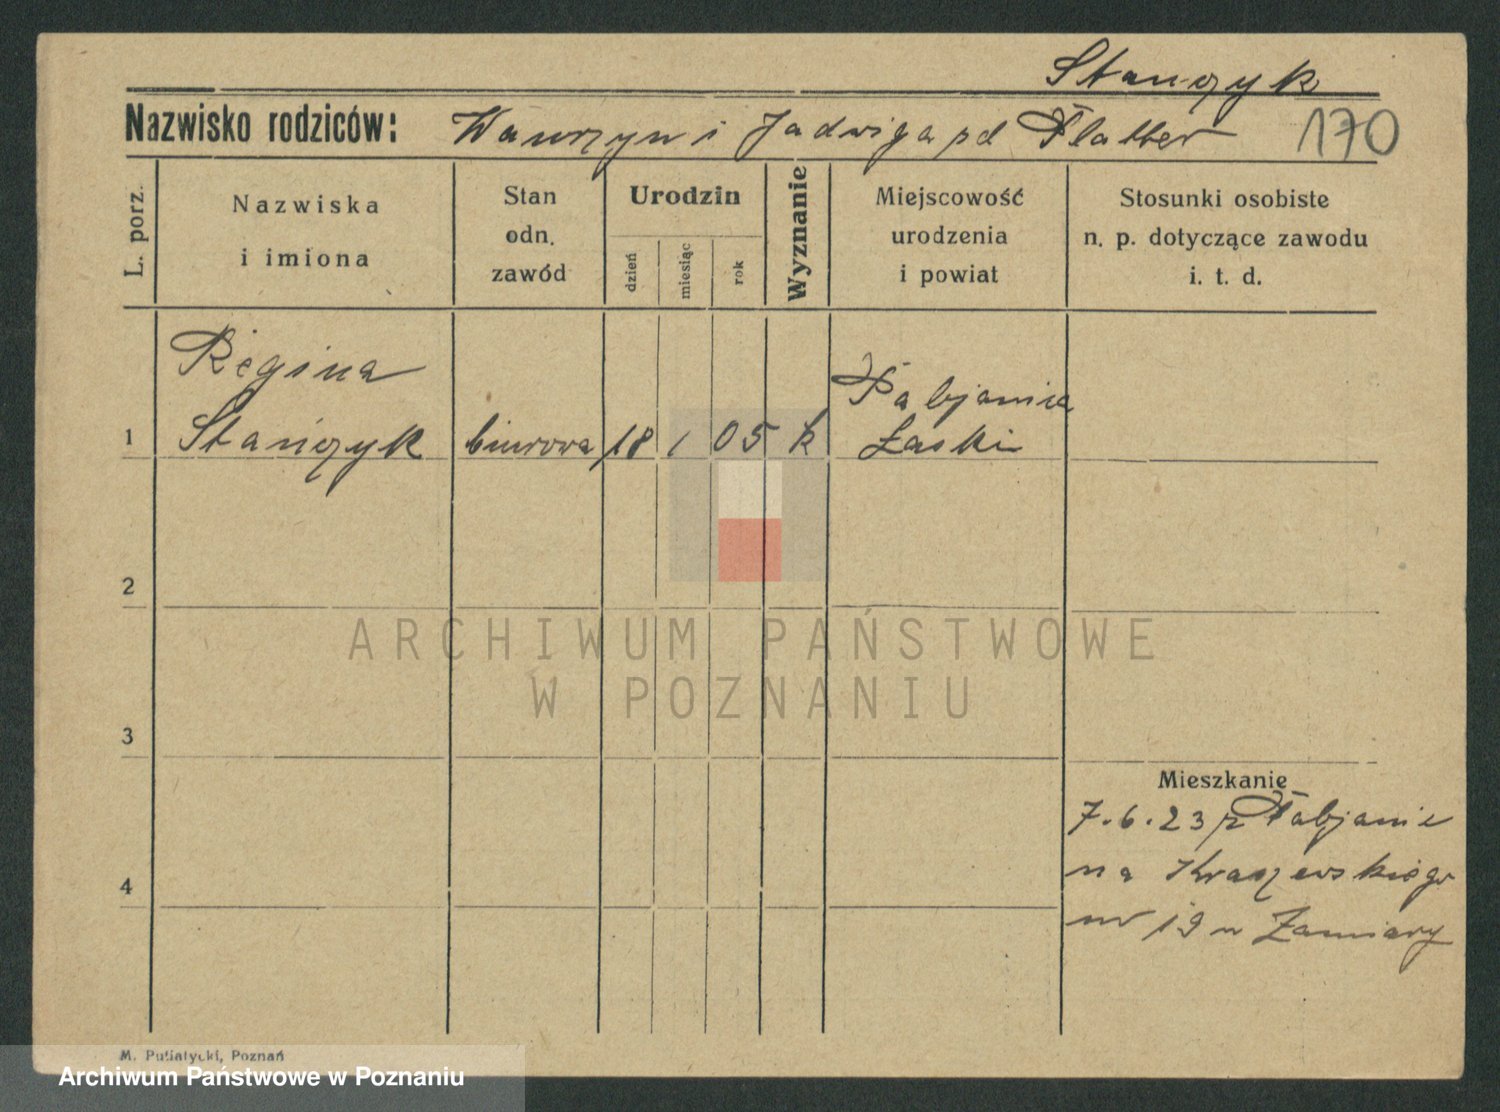 Stańczyk
Nazwisko rodziców: Wawrzyn i Jadwiga zd 170
L. porz.
Nazwiska
i imiona
Stan
odn.
zawód
Urodzin
dzień
miesiąc
rok
Wyznanie
Miejscowość
urodzenia
i powiat
Stosunki osobiste
n. p. dotyczące zawodu
i. t. d.
Regina
Pabjanice
1 Stańczyk biurowa 18 1 05 k Łaski
2
ARCHIWUM PAŃSTWOWE
W POZNANIU
3
Mieszkanie
7.6.23 z Pabjanic
4 na Kraszewskiego
nr 19 u
M. Putiatycki, Poznań
Archiwum Państwowe w Poznaniu